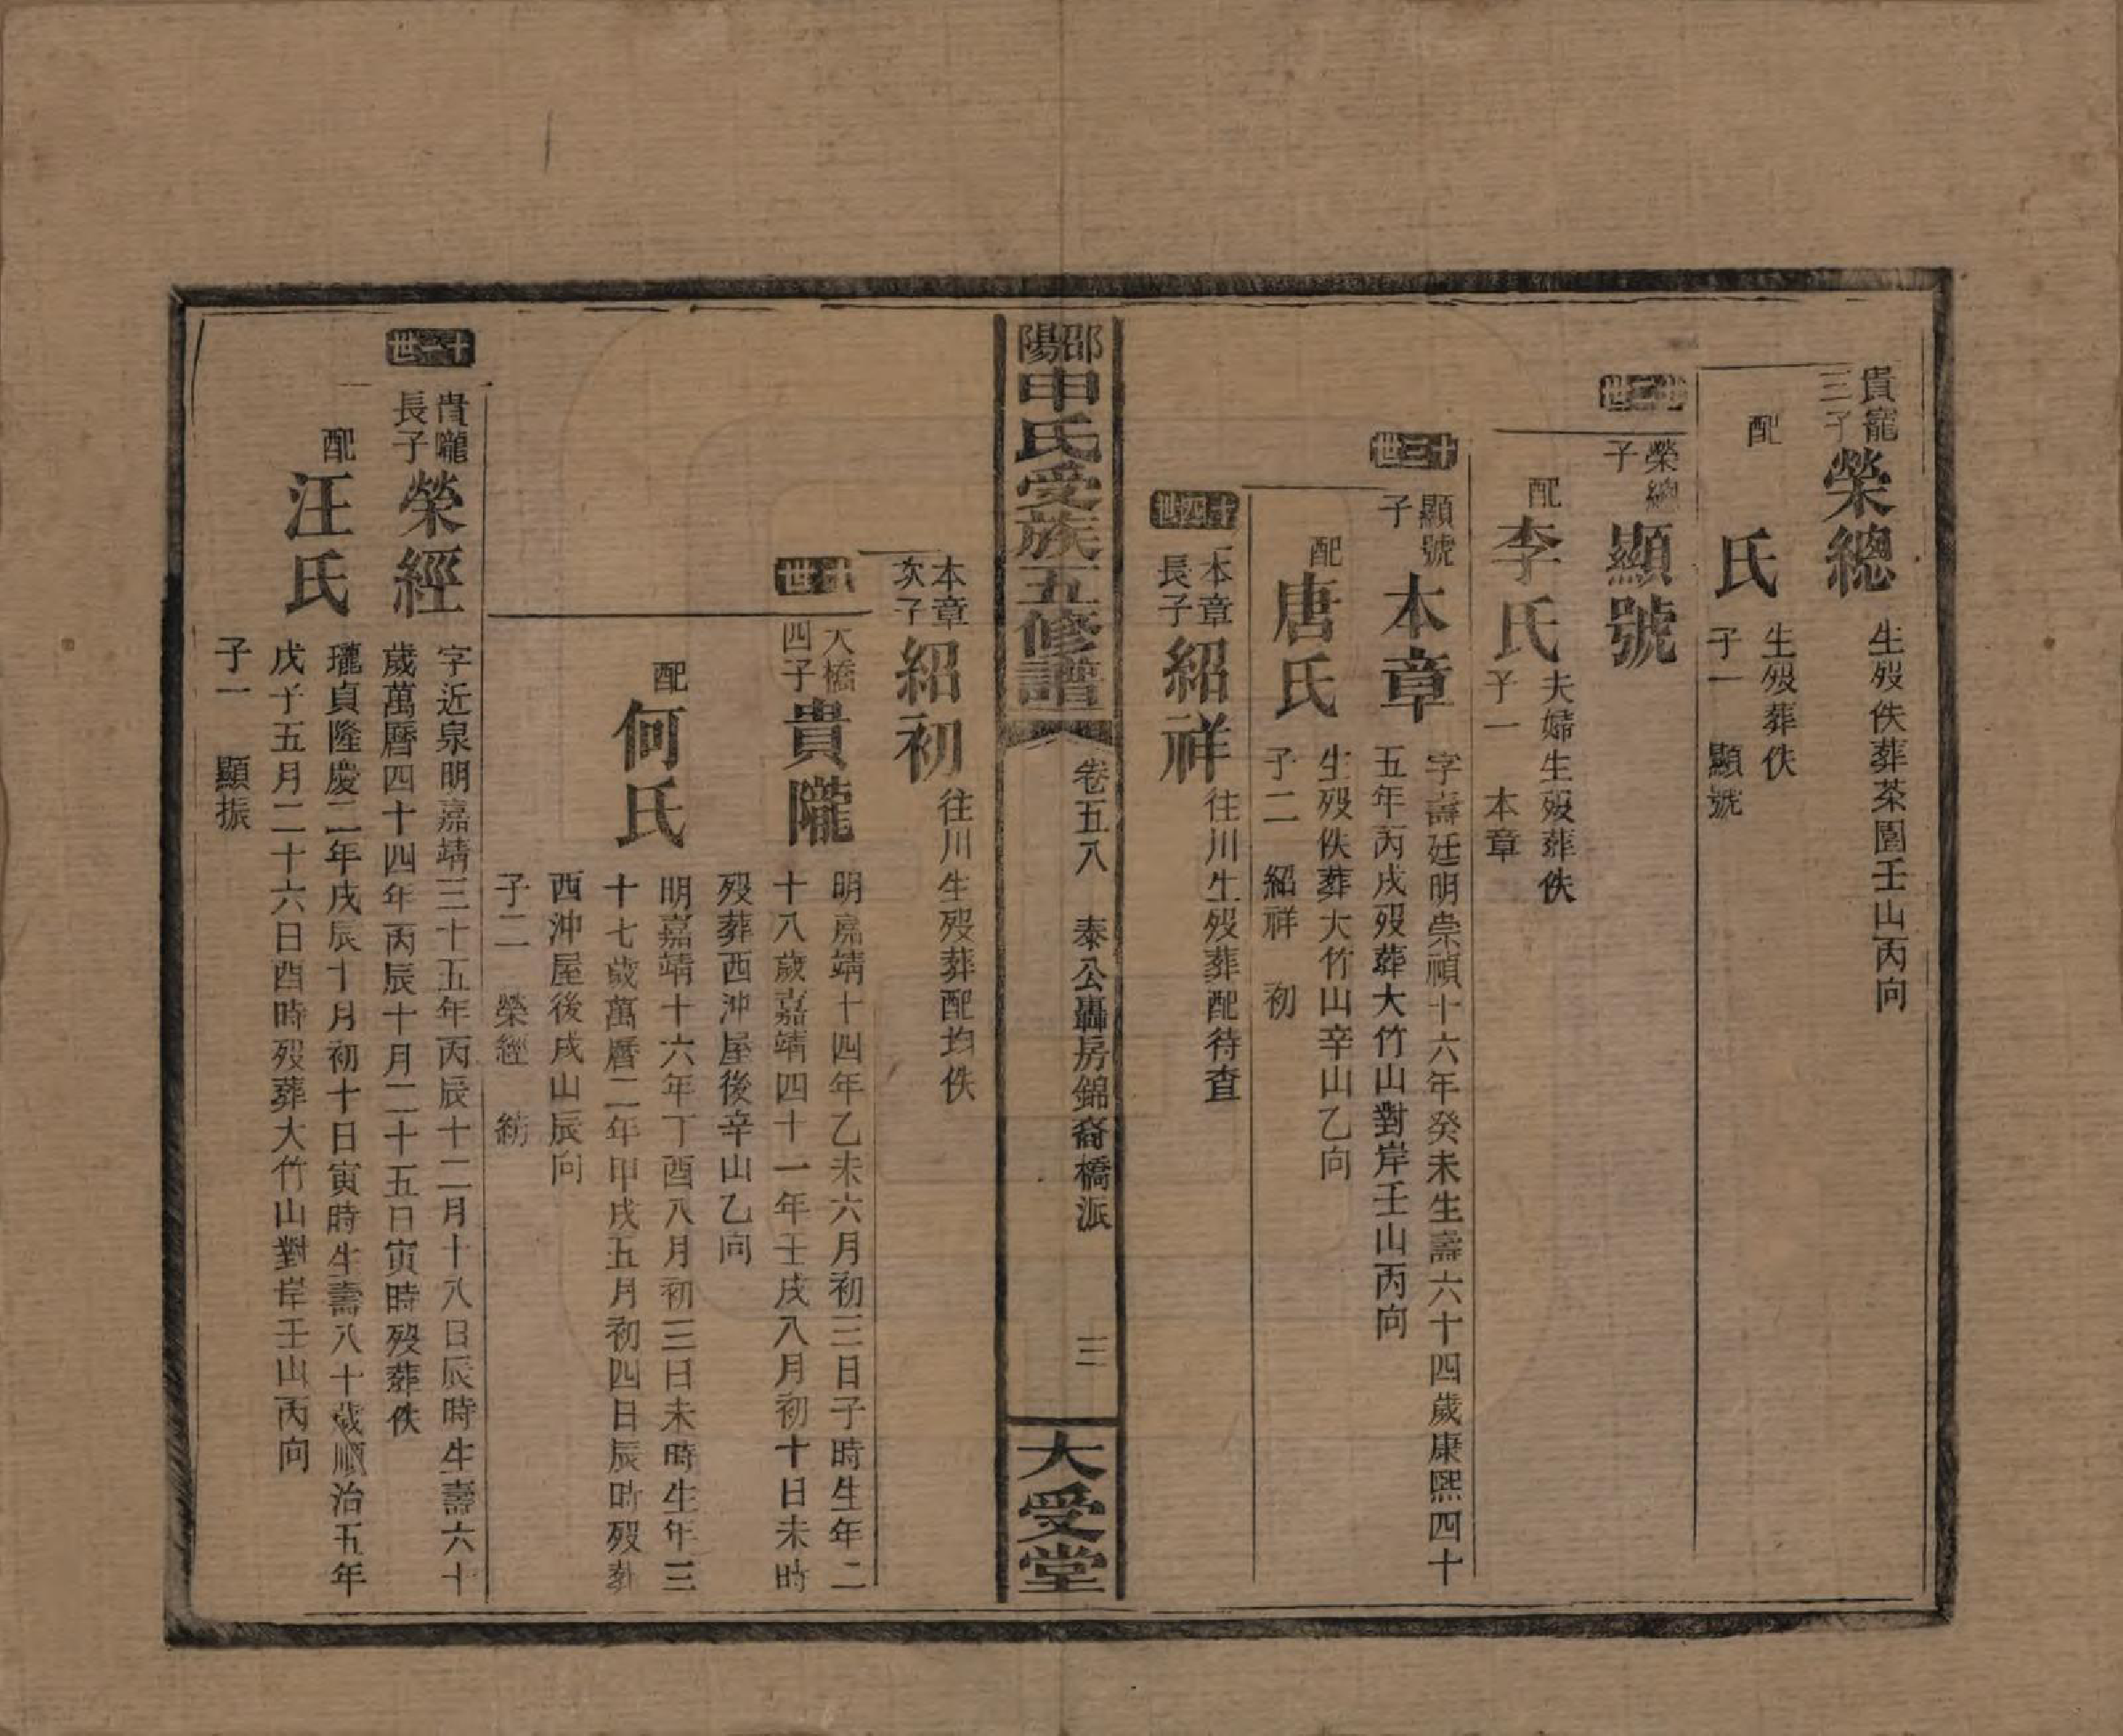 貴寵
三子
榮總
生殁佚葬茶園壬山丙向
配
氏
生殁葬佚
子一　顯號
十二世
榮總
子
顯號
配
李氏
夫婦生殁葬佚
子一　本章
十三世
顯號
子
本章
字壽廷明崇禎十六年癸未生壽六十四歲康熙四十
五年丙戌殁葬大竹山對岸壬山丙向
配
唐氏
生殁佚葬大竹山辛山乙向
子二　紹祥　初
十四世
本章
長子
紹祥
往川生殁葬配待查
邵陽申氏受族五修譜
卷五八　泰公轟房錦裔橋派
三
大受堂
本章
次子
紹初
往川生殁葬配均佚
十世
大橋
四子
貴隴
明嘉靖十四年乙未六月初三日子時生年二
十八歲嘉靖四十一年壬戌八月初十日未時
殁葬西沖屋後辛山乙向
配
何氏
明嘉靖十六年丁酉八月初三日未時生年三
十七歲萬曆二年甲戌五月初四日辰時殁葬
西沖屋後戌山辰向
子二　榮經　紡
十一世
貴隴
長子
榮經
字近泉明嘉靖三十五年丙辰十二月十八日辰時生壽六十
歲萬曆四十四年丙辰十月二十五日寅時殁葬佚
配
汪氏
瓏貞隆慶二年戊辰十月初十日寅時生壽八十歲順治五年
戊子五月二十六日酉時殁葬大竹山對岸壬山丙向
子一　顯振